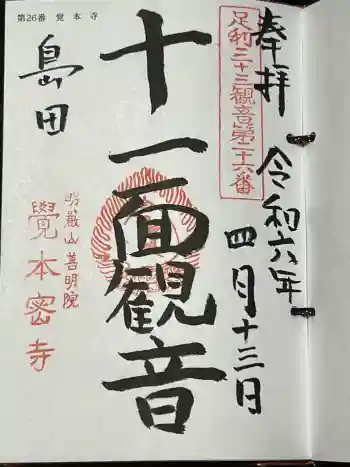 第26番 覚本寺
奉拝
令和六年
四月十三日
足利三十三観音第二十六番
十一面観音
島田
明嚴山善明院
覺本密寺